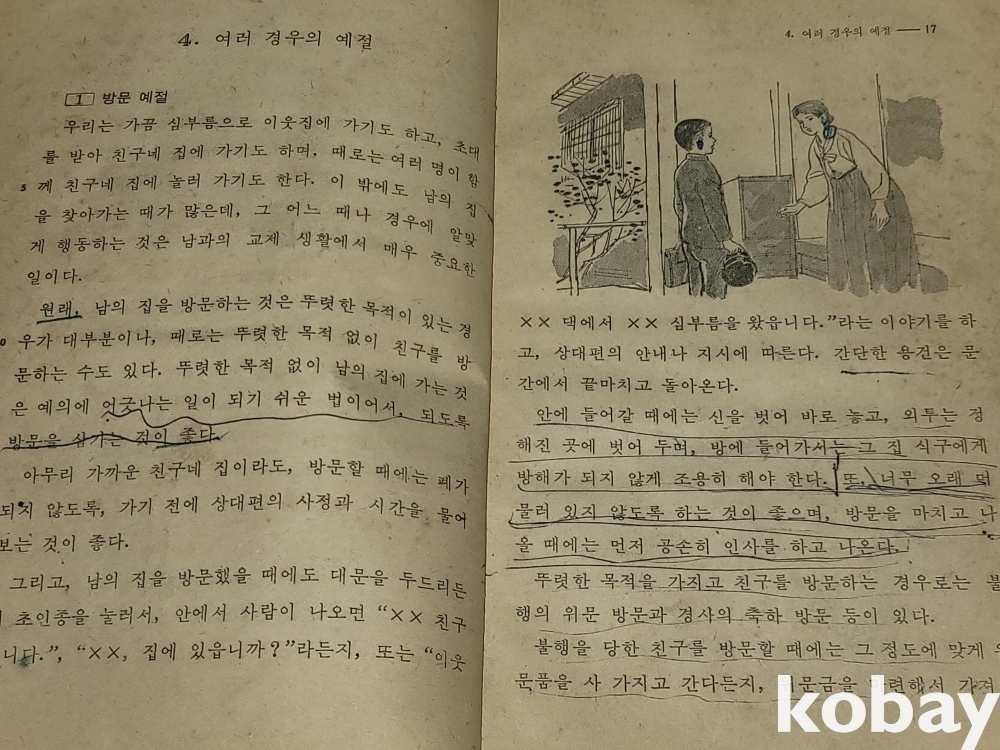 4. 여러 경우의 예절
1 방문 예절
우리는 가끔 심부름으로 이웃집에 가기도 하고, 초대
를 받아 친구네 집에 가기도 하며, 때로는 여러 명이 함
5 께 친구네 집에 놀러 가기도 한다. 이 밖에도 남의 집
을 찾아가는 때가 많은데, 그 어느 때나 경우에 알맞
게 행동하는 것은 남과의 교제 생활에서 매우 중요한
일이다.
원래, 남의 집을 방문하는 것은 뚜렷한 목적이 있는 경
0 우가 대부분이나, 때로는 뚜렷한 목적 없이 친구를 방
문하는 수도 있다. 뚜렷한 목적 없이 남의 집에 가는 것
은 예의에 어긋나는 일이 되기 쉬운 법이어서, 되도록
방문을 삼가는 것이 좋다.
아무리 가까운 친구네 집이라도, 방문할 때에는 폐가
되지 않도록, 가기 전에 상대편의 사정과 시간을 물어
보는 것이 좋다.
그리고, 남의 집을 방문했을 때에도 대문을 두드리든
초인종을 눌러서, 안에서 사람이 나오면 “×× 친구
니다.”, “××, 집에 있읍니까?”라든지, 또는 “이웃
4. 여러 경우의 예절 ── 17
×× 댁에서 ×× 심부름을 왔읍니다.”라는 이야기를 하
고, 상대편의 안내나 지시에 따른다. 간단한 용건은 문
간에서 끝마치고 돌아온다.
안에 들어갈 때에는 신을 벗어 바로 놓고, 외투는 정
해진 곳에 벗어 두며, 방에 들어가서는 그 집 식구에게
방해가 되지 않게 조용히 해야 한다. 또, 너무 오래 머
물러 있지 않도록 하는 것이 좋으며, 방문을 마치고 나
올 때에는 먼저 공손히 인사를 하고 나온다.
뚜렷한 목적을 가지고 친구를 방문하는 경우로는 불
행의 위문 방문과 경사의 축하 방문 등이 있다.
불행을 당한 친구를 방문할 때에는 그 정도에 맞게 위
문품을 사 가지고 간다든지, 위문금을 마련해서 가져
kobay